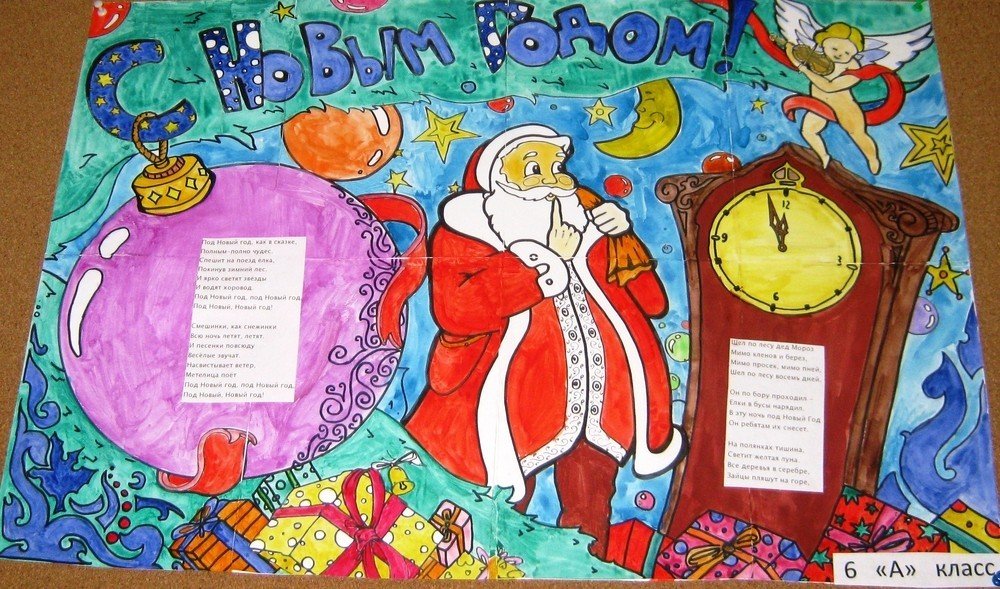 С Новым Годом!
Под Новый год, как в сказке,
Полным-полно чудес.
Спешит на поезд ёлка,
Покинув зимний лес.
И ярко светят звёзды
И водят хоровод
Под Новый год, под Новый год,
Под Новый, Новый год!
Смешинки, как снежинки
Всю ночь летят, летят.
И песенки повсюду
Весёлые звучат.
Насвистывает ветер,
Метелица поёт
Под Новый год, под Новый год,
Под Новый, Новый год!
12
3
6
9
Шел по лесу дед Мороз
Мимо кленов и берез,
Мимо просек, мимо пней,
Шел по лесу восемь дней.
Он по бору проходил –
Елки в бусы нарядил.
В эту ночь под Новый Год
Он ребятам их снесет.
На полянках тишина.
Светит желтая луна.
Все деревья в серебре,
Зайцы пляшут на горе,
6 «А» класс